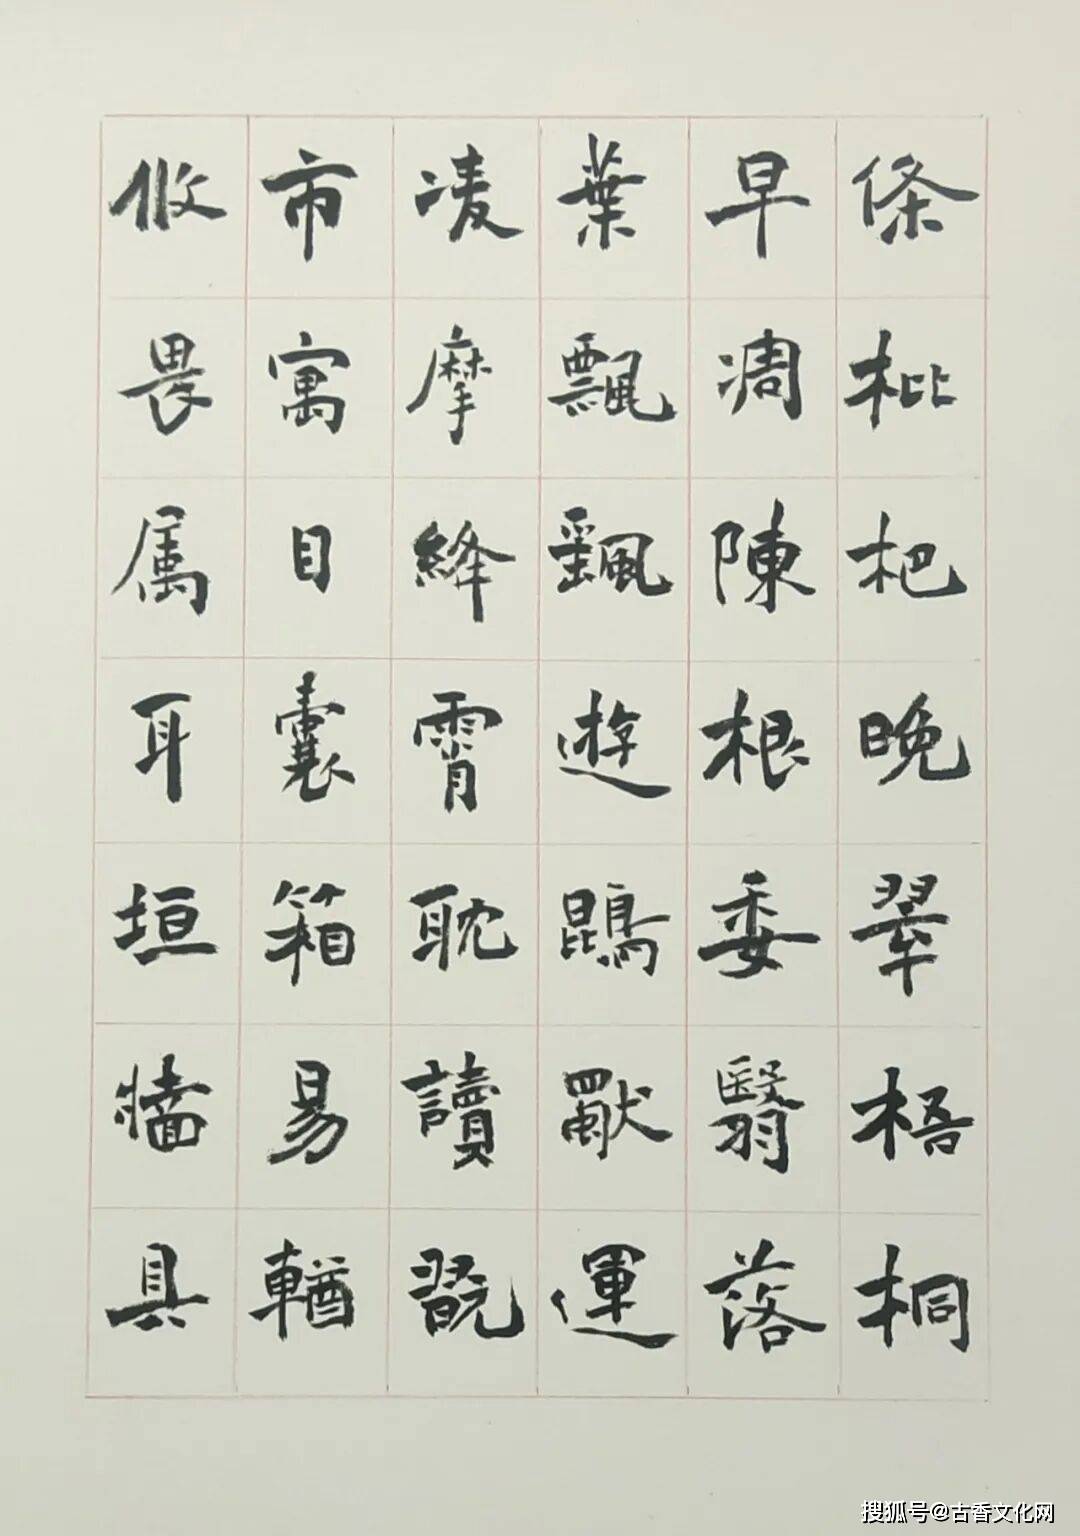 條枇杷晚翠梧桐
早凋陳根委翳落
葉飄颻遊鵾獨運
凌摩絳霄耽讀翫
市寓目囊箱易輶
攸畏属耳垣牆具
搜狐号@古香文化网